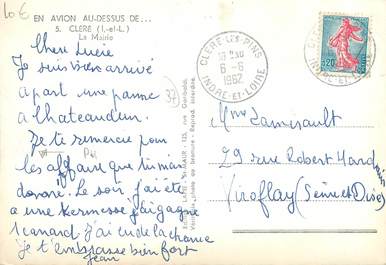 10 €
EN AVION AU-DESSUS DE...
5. CLÉRÉ (I.-et-L.)
La Mairie
Chere Lucie
Je suis bien arrivé
apart une panne
a Chateaudun.
Je te remercie pour
les affaire que tu m'as
donné. Le soir j'ai été
a une Kermesse j'ai gagné
1 canard j'ai eu de la chance
je t'embrasse bien fort
Jean
37
CLÉRÉ LES PINS
6-6
1962
INDRE-ET-LOIRE
0,20
Mme Lamerault
29 rue Robert
Viroflay (Seine et Oise)